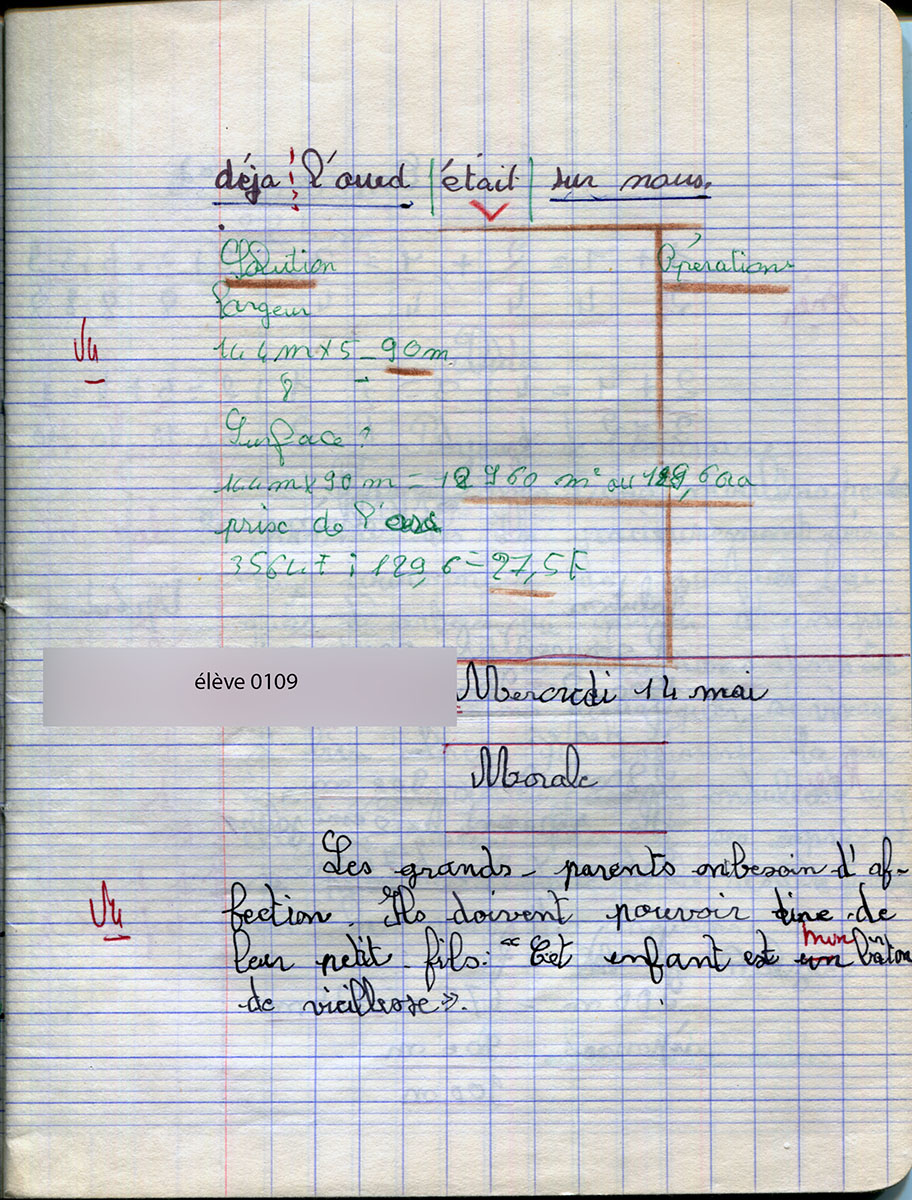 déja l'oued était sur nous.
Solution Opérations
largeur
Vu
144m x 5 = 90m
8
Surface ?
144m x 90 m = 12 960 m² ou 129,60a
prix de l'are
3564F : 129,6 = 27,5F
élève 0109
Mercredi 14 mai
Morale
Les grands-parents on besoin d'af-
Vu
fection. Ils doivent pouvoir dire de
mon
leur petit fils: "Cet enfant est un bâton
de vieillesse».